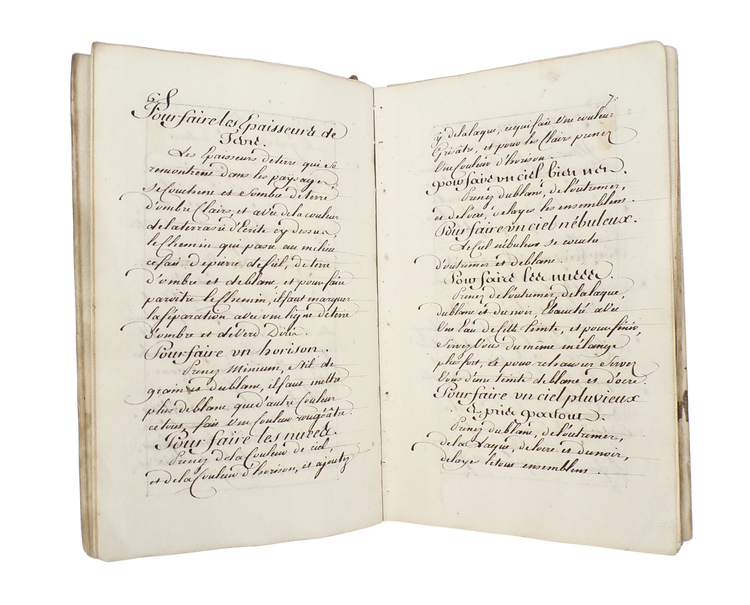 6
Pour faire les Epaisseurs de
Terre.
Les Epaisseurs de terre qui se
rencontrent dans les paysage
se couchent et sombre de terre
d'ombre Clair, et avec de la couleur
de la terrasse d'Ecrite cy dessus
le Chemin qui passe au milieu
ce fait de pierre de fiel, de terre
d'ombre et de blanc, et pour faire
paroître le Chemin, il faut marquer
la séparation avec un ligne de terre
d'ombre et de Verd D'iris.
Pour faire un horison.
Prenez Minium, Stil de
grain et du blanc, il faut mettre
plus de blanc, que d'autre Couleur
ce tout, fait Un Couleur rougeâtre.
Pour faire les nuées.
Prenez de la Couleur de ciel,
et de la Couleur d'horison, et ajoutez
7
y de la laque, ce qui fait Une couleur
Grisâtre, et pour les Clairs prenez
Une Couleur d'horison.
pour faire un ciel bien net.
Prenez du blanc, de l'outremer,
et de l'ocre, delayez les ensemblens.
Pour faire un ciel nébuleux.
Le Ciel nébuleux se couche
d'outremer et de blanc.
Pour faire les nuées.
Prenez de l'outremer, de la laque,
du blanc et du noir, Ebauché avec
Une Eau de cette teinte, et pour finir,
Servez Vous du même mélange
plus fort, et pour rehausser Servez
Vous d'une teinte de blanc et d'ocre.
Pour faire un ciel pluvieux
Et pris partout.
Prenez du blanc, de l'outremer,
de la Laque, de l'ocre et du noir,
delayez le tout ensemblens.